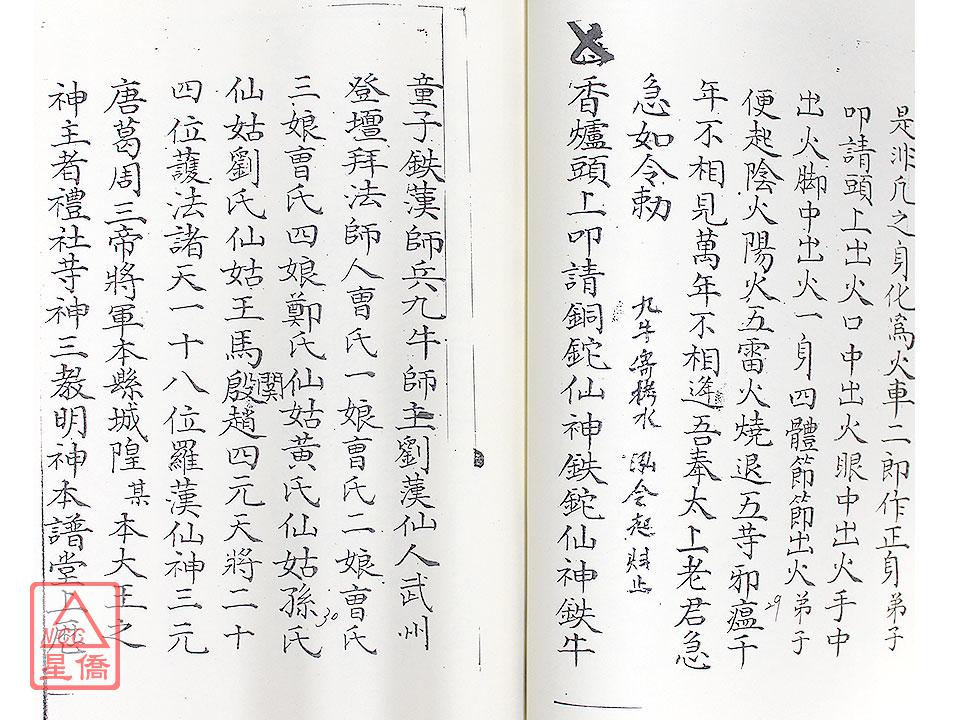 是非凡之身化為火車二郎作正身弟子
叩請頭上出火口中出火眼中出火手中
出火脚中出火一身四體節節出火弟子
便起陰火陽火五雷火燒退五䓁邪瘟千
年不相見萬年不相逢吾奉太上老君急
急如令勅 九牛寄 水 起 止
香爐頭上叩請銅鉈仙神鉄鉈仙神鉄牛
29
童子鉄漢師兵九牛師主劉漢仙人武州
登壇拜法師人曹氏一娘曹氏二娘曹氏
三娘曹氏四娘鄭氏仙姑黃氏仙姑孫氏
仙姑劉氏仙姑王馬殷趙關四元天將二十
四位護法諸天一十八位羅漢仙神三元
唐葛周三帝將軍本縣城隍某本大王之
神主者禮社䓁神三教明神本譜堂上歷
30
NCC
星僑